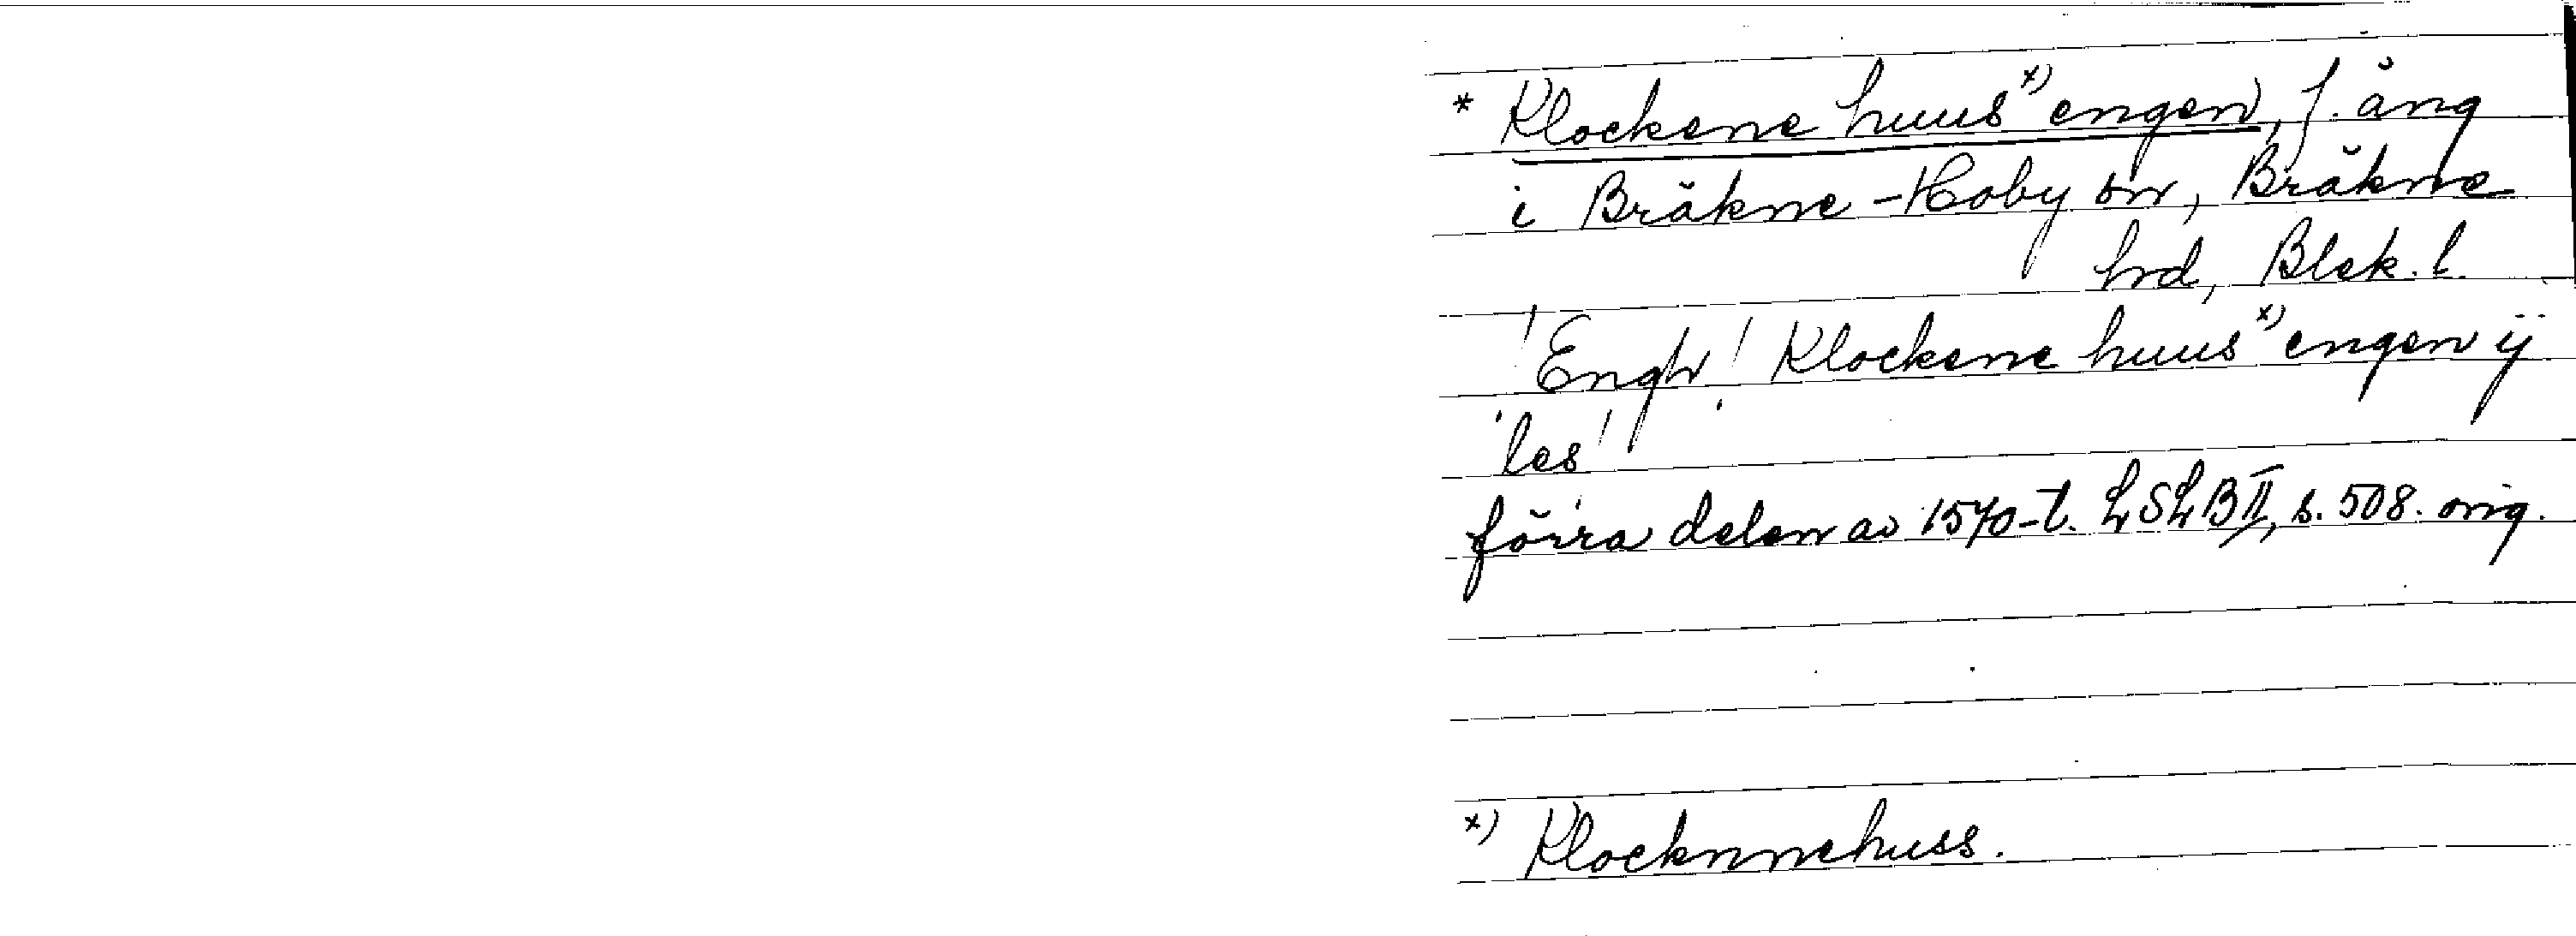 * Klockene huus x) engen, f. äng
i Bräkne-Hoby sn, Bräkne
hrd, Blek. l.
'Engh' Klockene huus x) engen ij
'les'
förra delen av 1570-t. LSLB II, s. 508. orig.
x) Klocknnehuss.